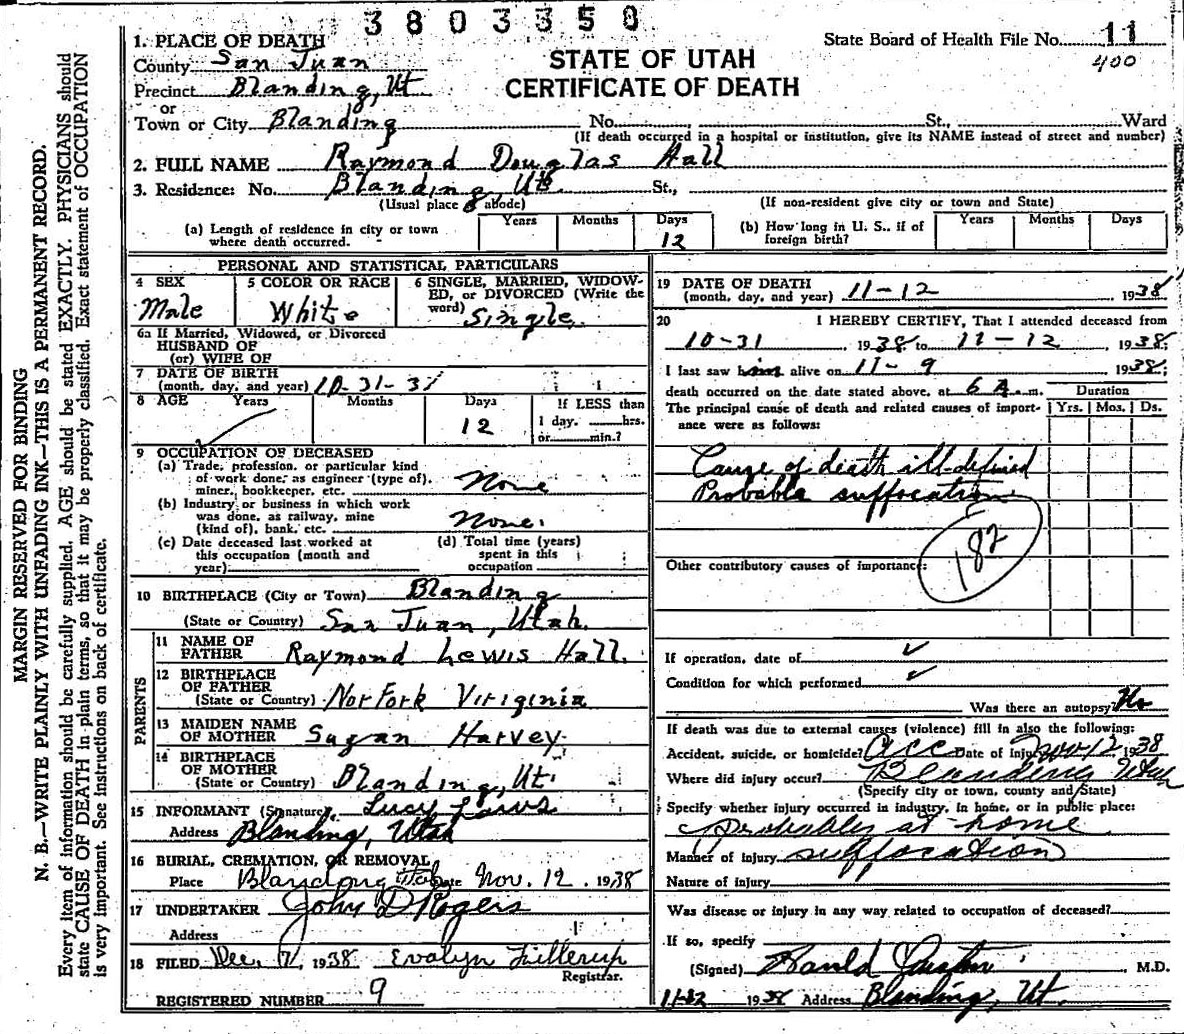 3803350
State Board of Health File No. 11
400
STATE OF UTAH
CERTIFICATE OF DEATH
MARGIN RESERVED FOR BINDING
N. B.—WRITE PLAINLY WITH UNFADING INK—THIS IS A PERMANENT RECORD.
Every item of information should be carefully supplied. AGE should be stated EXACTLY. PHYSICIANS should
state CAUSE OF DEATH in plain terms, so that it may be properly classified. Exact statement of OCCUPATION
is very important. See instructions on back of certificate.
1. PLACE OF DEATH
County San Juan
Precinct Blanding, Ut
or
Town or City Blanding No. St., Ward
(If death occurred in a hospital or institution, give its NAME instead of street and number)
2. FULL NAME Raymond Douglas Hall
3. Residence: No. Blanding, Ut. St.,
(Usual place abode) (If non-resident give city or town and State)
(a) Length of residence in city or town where death occurred. Years Months Days 12
(b) How long in U. S., if of foreign birth? Years Months Days
PERSONAL AND STATISTICAL PARTICULARS
4 SEX Male
5 COLOR OR RACE White
6 SINGLE, MARRIED, WIDOWED, or DIVORCED (Write the word) Single
6a If Married, Widowed, or Divorced
HUSBAND OF
(or) WIFE OF
7 DATE OF BIRTH
(month, day, and year) 10-31-
8 AGE Years Months Days 12
If LESS than
1 day, hrs.
or min.?
9 OCCUPATION OF DECEASED
(a) Trade, profession, or particular kind
of work done, as engineer (type of),
miner, bookkeeper, etc. None
(b) Industry or business in which work
was done, as railway, mine
(kind of), bank, etc. None.
(c) Date deceased last worked at
this occupation (month and
year)
(d) Total time (years)
spent in this
occupation
10 BIRTHPLACE (City or Town) Blanding
(State or Country) San Juan, Utah.
PARENTS
11 NAME OF FATHER Raymond Lewis Hall.
12 BIRTHPLACE OF FATHER
(State or Country) NorFork Viriginia
13 MAIDEN NAME OF MOTHER Susan Harvey
14 BIRTHPLACE OF MOTHER
(State or Country) Blanding, Ut.
15 INFORMANT (Signature) Lucy Laws
Address Blanding, Utah
16 BURIAL, CREMATION, OR REMOVAL
Place Blanding Utah Date Nov. 12, 1938
17 UNDERTAKER John D Rogers
Address
18 FILED Dec. 1938 Evalyn Fillerup
Registrar.
REGISTERED NUMBER 9
19 DATE OF DEATH
(month, day, and year) 11-12, 1938
20 I HEREBY CERTIFY, That I attended deceased from
10-31, 1938 to 11-12, 1938;
I last saw him alive on 11-9 1938;
death occurred on the date stated above, at 6 A. m.
Duration
The principal cause of death and related causes of importance were as follows: Yrs. Mos. Ds.
Cause of death ill-defined
Probable suffocation
182
Other contributory causes of importance:
If operation, date of
Condition for which performed
Was there an autopsy? No
If death was due to external causes (violence) fill in also the following:
Accident, suicide, or homicide? Acc Date of injury Nov 12 1938
Where did injury occur? Blanding Utah
(Specify city or town, county and State)
Specify whether injury occurred in industry, in home, or in public place:
Probably at home
Manner of injury suffocation
Nature of injury
Was disease or injury in any way related to occupation of deceased?
If so, specify
(Signed) M.D.
1938 Address Blanding, Ut.